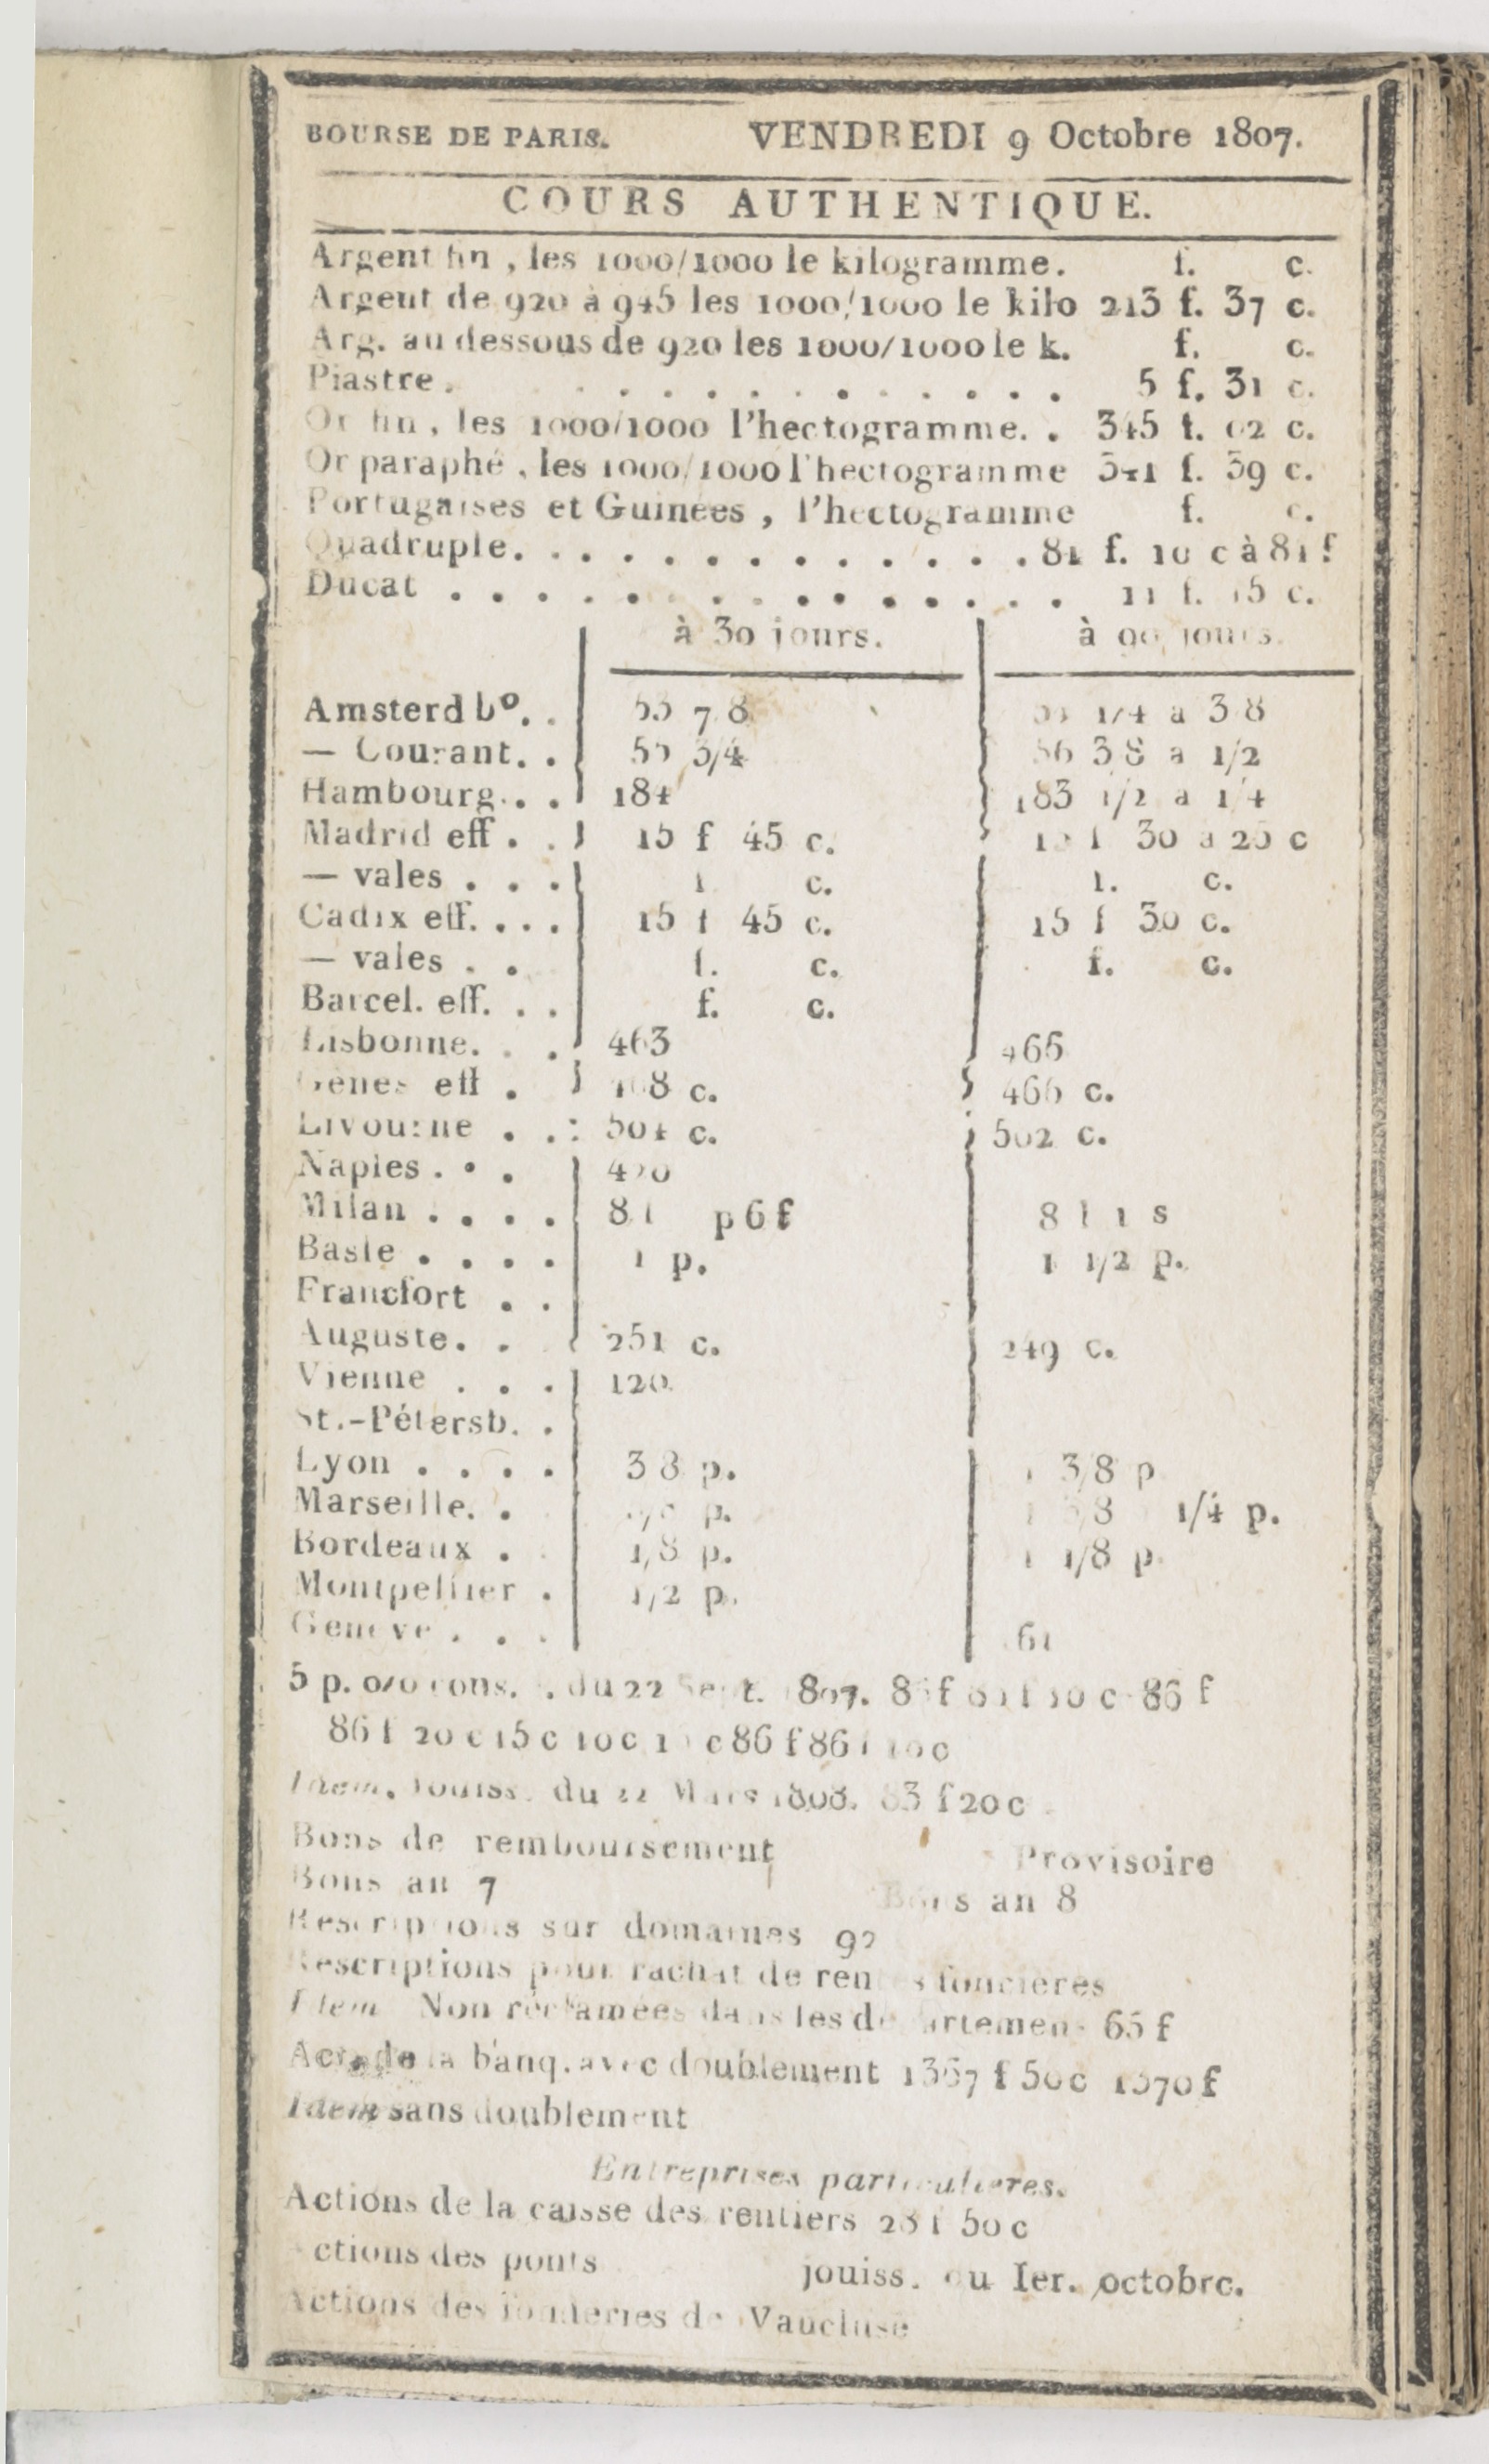 BOURSE DE PARIS. VENDREDI 9 Octobre 1807.
COURS AUTHENTIQUE.
Argent fin, les 1000/1000 le kilogramme. f. c.
Argent de 920 à 945 les 1000/1000 le kilo 213 f. 37 c.
Arg. au dessous de 920 les 1000/1000 le k. f. c.
Piastre. . . . . . . . . . . . 5 f. 31 c.
Or fin, les 1000/1000 l'hectogramme. . 345 f. 02 c.
Or paraphé, les 1000/1000 l'hectogramme 341 f. 39 c.
Portugaises et Guinées, l'hectogramme f. c.
Quadruple. . . . . . . . . . . . . 81 f. 10 c à 81 f
Ducat . . . . . . . . . . . . . . . 11 f. 15 c.
à 30 jours. à 90 jours.
Amsterd bº. . 53 7/8 1/4 a 3/8
— Courant. . 55 3/4 56 3/8 a 1/2
Hambourg. . . 184 183 1/2 a 1/4
Madrid eff . . 15 f 45 c. 15 f 30 a 25 c
— vales . . . f c. f. c.
Cadix eff. . . . 15 f 45 c. 15 f 30 c.
— vales . . f. c. f. c.
Barcel. eff. . . f. c.
Lisbonne. . . 463 465
Gènes eff . 468 c. 466 c.
Livourne . . . 504 c. 502 c.
Naples . . .
Milan . . . . 8 l p 6 f 8 l 1 s
Basle . . . . 1 p. 1 1/2 p.
Francfort . .
Auguste. . 251 c. 249 c.
Vienne . . . 120
St.-Pétersb. .
Lyon . . . . 3/8 p. 1 3/8 p
Marseille. . p. 1/4 p.
Bordeaux . 1/8 p. 1 1/8 p
Montpellier . 1/2 p.
Genève . . . 161
5 p. o/o cons. . du 22 Sept. 1807. 86 f
86 f 20 c 15 c 10 c c 86 f 86 f 10 c
Idem. Jouiss. du 22 Mars 1808. 83 f 20 c
Bons de remboursement Provisoire
Bons an 7 Bons an 8
Rescriptions sur domaines 92
Rescriptions pour rachat de rentes foncières
Idem Non réclamées dans les départemens 65 f
Act. de la banq. avec doublement 1367 f 50 c 1370 f
Idem sans doublement
Entreprises particulières.
Actions de la caisse des rentiers 28 f 50 c
Actions des ponts jouiss. du Ier. octobre.
Actions des fonderies de Vaucluse